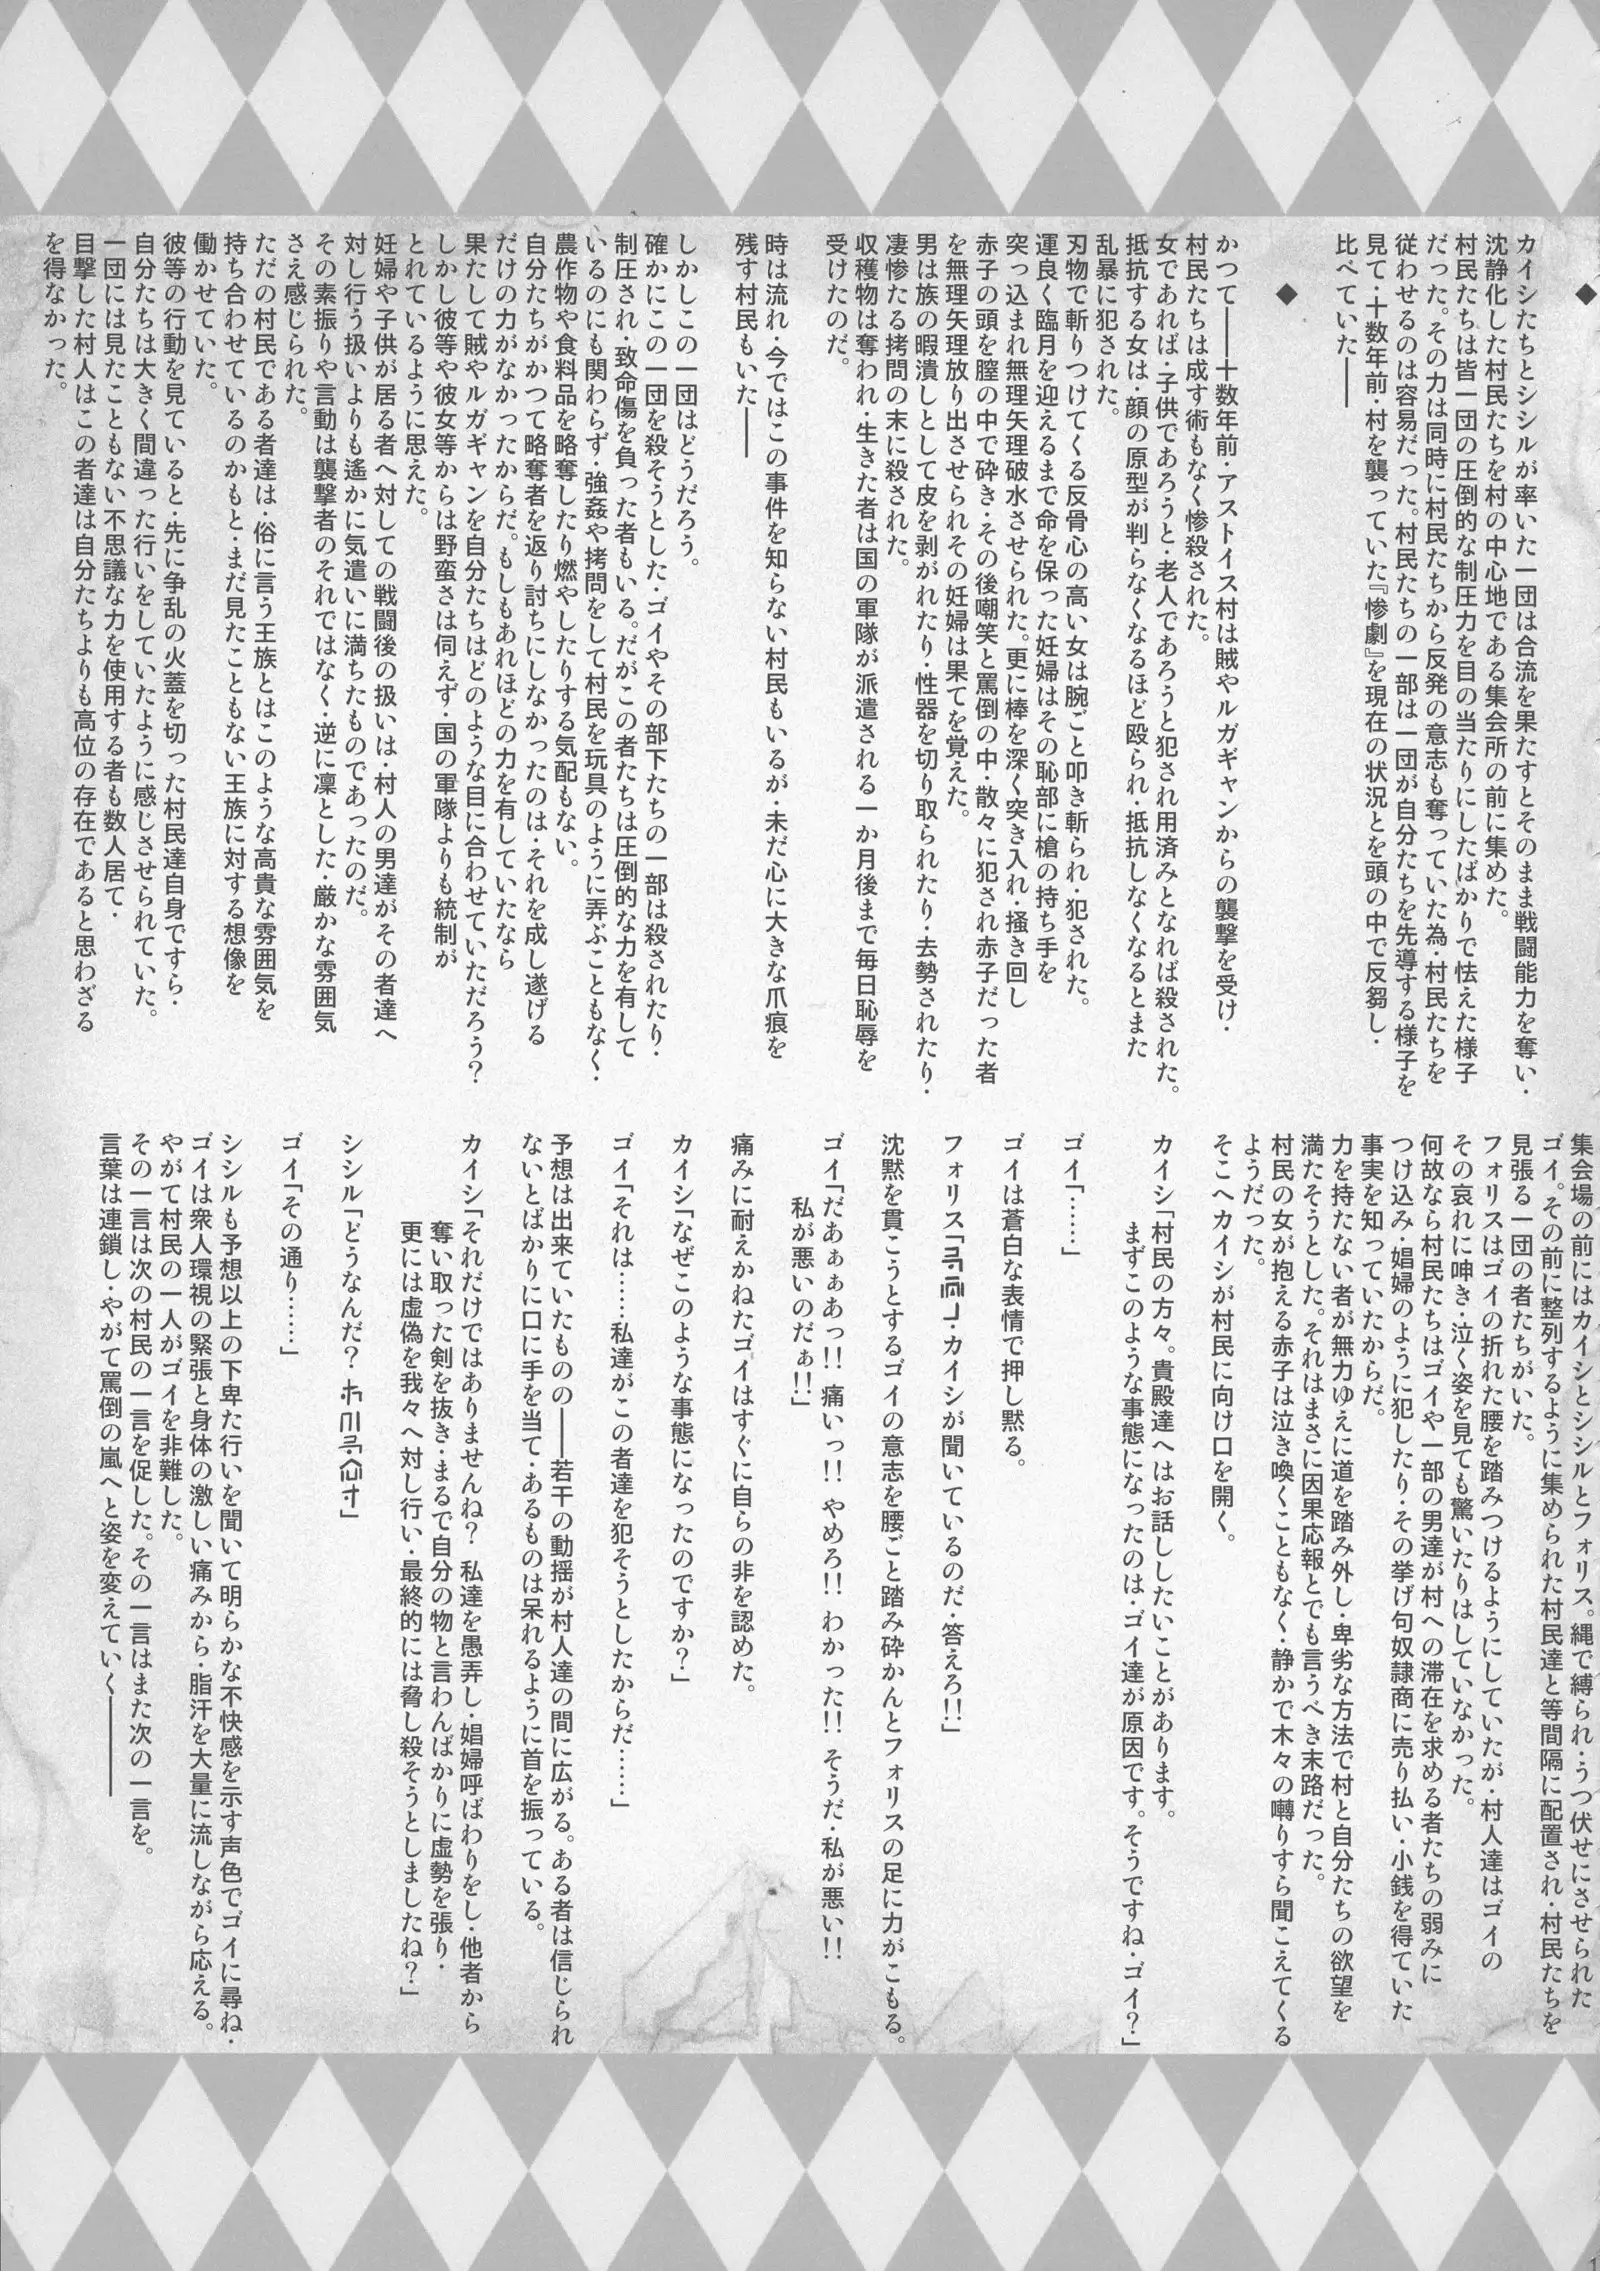 ◆
カイシたちとシシルが率いた一団は合流を果たすとそのまま戦闘能力を奪い・
沈静化した村民たちを村の中心地である集会所の前に集めた。
村民たちは皆一団の圧倒的な制圧力を目の当たりにしたばかりで怯えた様子
だった。その力は同時に村民たちから反発の意志も奪っていた為・村民たちを
従わせるのは容易だった。村民たちの一部は一団が自分たちを先導する様子を
見て・十数年前・村を襲っていた『惨劇』を現在の状況とを頭の中で反芻し・
比べていた――
◆
かつて――十数年前・アストイス村は賊やルガギャンからの襲撃を受け・
村民たちは成す術もなく惨殺された。
女であれば・子供であろうと・老人であろうと犯され用済みとなれば殺された。
抵抗する女は・顔の原型が判らなくなるほど殴られ・抵抗しなくなるとまた
乱暴に犯された。
刃物で斬りつけてくる反骨心の高い女は腕ごと叩き斬られ・犯された。
運良く臨月を迎えるまで命を保った妊婦はその恥部に槍の持ち手を
突っ込まれ無理矢理破水させられた。更に棒を深く突き入れ・掻き回し
赤子の頭を膣の中で砕き・その後嘲笑と罵倒の中・散々に犯され赤子だった者
を無理矢理放り出させられその妊婦は果てを覚えた。
男は族の暇潰しとして皮を剥がれたり・性器を切り取られたり・去勢されたり・
凄惨たる拷問の末に殺された。
収穫物は奪われ・生きた者は国の軍隊が派遣される一か月後まで毎日恥辱を
受けたのだ。
時は流れ・今ではこの事件を知らない村民もいるが・未だ心に大きな爪痕を
残す村民もいた――
しかしこの一団はどうだろう。
確かにこの一団を殺そうとした・ゴイやその部下たちの一部は殺されたり・
制圧され・致命傷を負った者もいる。だがこの者たちは圧倒的な力を有して
いるのにも関わらず・強姦や拷問をして村民を玩具のように弄ぶこともなく・
農作物や食料品を略奪したり燃やしたりする気配もない。
自分たちがかつて略奪者を返り討ちにしなかったのは・それを成し遂げる
だけの力がなかったからだ。もしもあれほどの力を有していたなら
果たして賊やルガギャンを自分たちはどのような目に合わせていただろう?
しかし彼等や彼女等からは野蛮さは伺えず・国の軍隊よりも統制が
とれているように思えた。
妊婦や子供が居る者へ対しての戦闘後の扱いは・村人の男達がその者達へ
対し行う扱いよりも遙かに気遣いに満ちたものであったのだ。
その素振りや言動は襲撃者のそれではなく・逆に凜とした・厳かな雰囲気
さえ感じられた。
ただの村民である者達は・俗に言う王族とはこのような高貴な雰囲気を
持ち合わせているのかもと・まだ見たこともない王族に対する想像を
働かせていた。
彼等の行動を見ていると・先に争乱の火蓋を切った村民達自身ですら・
自分たちは大きく間違った行いをしていたように感じさせられていた。
一団には見たこともない不思議な力を使用する者も数人居て・
目撃した村人はこの者達は自分たちよりも高位の存在であると思わざる
を得なかった。
集会場の前にはカイシとシシルとフォリス。縄で縛られ・うつ伏せにさせられた
ゴイ。その前に整列するように集められた村民達と等間隔に配置され・村民たちを
見張る一団の者たちがいた。
フォリスはゴイの折れた腰を踏みつけるようにしていたが・村人達はゴイの
その哀れに呻き・泣く姿を見ても驚いたりはしていなかった。
何故なら村民たちはゴイや一部の男達が村への滞在を求める者たちの弱みに
つけ込み・娼婦のように犯したり・その挙げ句奴隷商に売り払い・小銭を得ていた
事実を知っていたからだ。
力を持たない者が無力ゆえに道を踏み外し・卑劣な方法で村と自分たちの欲望を
満たそうとした。それはまさに因果応報とでも言うべき末路だった。
村民の女が抱える赤子は泣き喚くこともなく・静かで木々の囀りすら聞こえてくる
ようだった。
そこへカイシが村民に向け口を開く。
カイシ「村民の方々。貴殿達へはお話ししたいことがあります。
まずこのような事態になったのは・ゴイ達が原因です。そうですね・ゴイ?」
ゴイ「……」
ゴイは蒼白な表情で押し黙る。
フォリス「・カイシが聞いているのだ・答えろ!!」
沈黙を貫こうとするゴイの意志を腰ごと踏み砕かんとフォリスの足に力がこもる。
ゴイ「だあぁぁあっ!! 痛いっ!! やめろ!! わかった!! そうだ・私が悪い!!
私が悪いのだぁ!!」
痛みに耐えかねたゴイはすぐに自らの非を認めた。
カイシ「なぜこのような事態になったのですか?」
ゴイ「それは……私達がこの者達を犯そうとしたからだ……」
予想は出来ていたものの――若干の動揺が村人達の間に広がる。ある者は信じられ
ないとばかりに口に手を当て・あるものは呆れるように首を振っている。
カイシ「それだけではありませんね? 私達を愚弄し・娼婦呼ばわりをし・他者から
奪い取った剣を抜き・まるで自分の物と言わんばかりに虚勢を張り・
更には虚偽を我々へ対し行い・最終的には脅し殺そうとしましたね?」
シシル「どうなんだ? 」
ゴイ「その通り……」
シシルも予想以上の下卑た行いを聞いて明らかな不快感を示す声色でゴイに尋ね・
ゴイは衆人環視の緊張と身体の激しい痛みから・脂汗を大量に流しながら応える。
やがて村民の一人がゴイを非難した。
その一言は次の村民の一言を促した。その一言はまた次の一言を。
言葉は連鎖し・やがて罵倒の嵐へと姿を変えていく――――